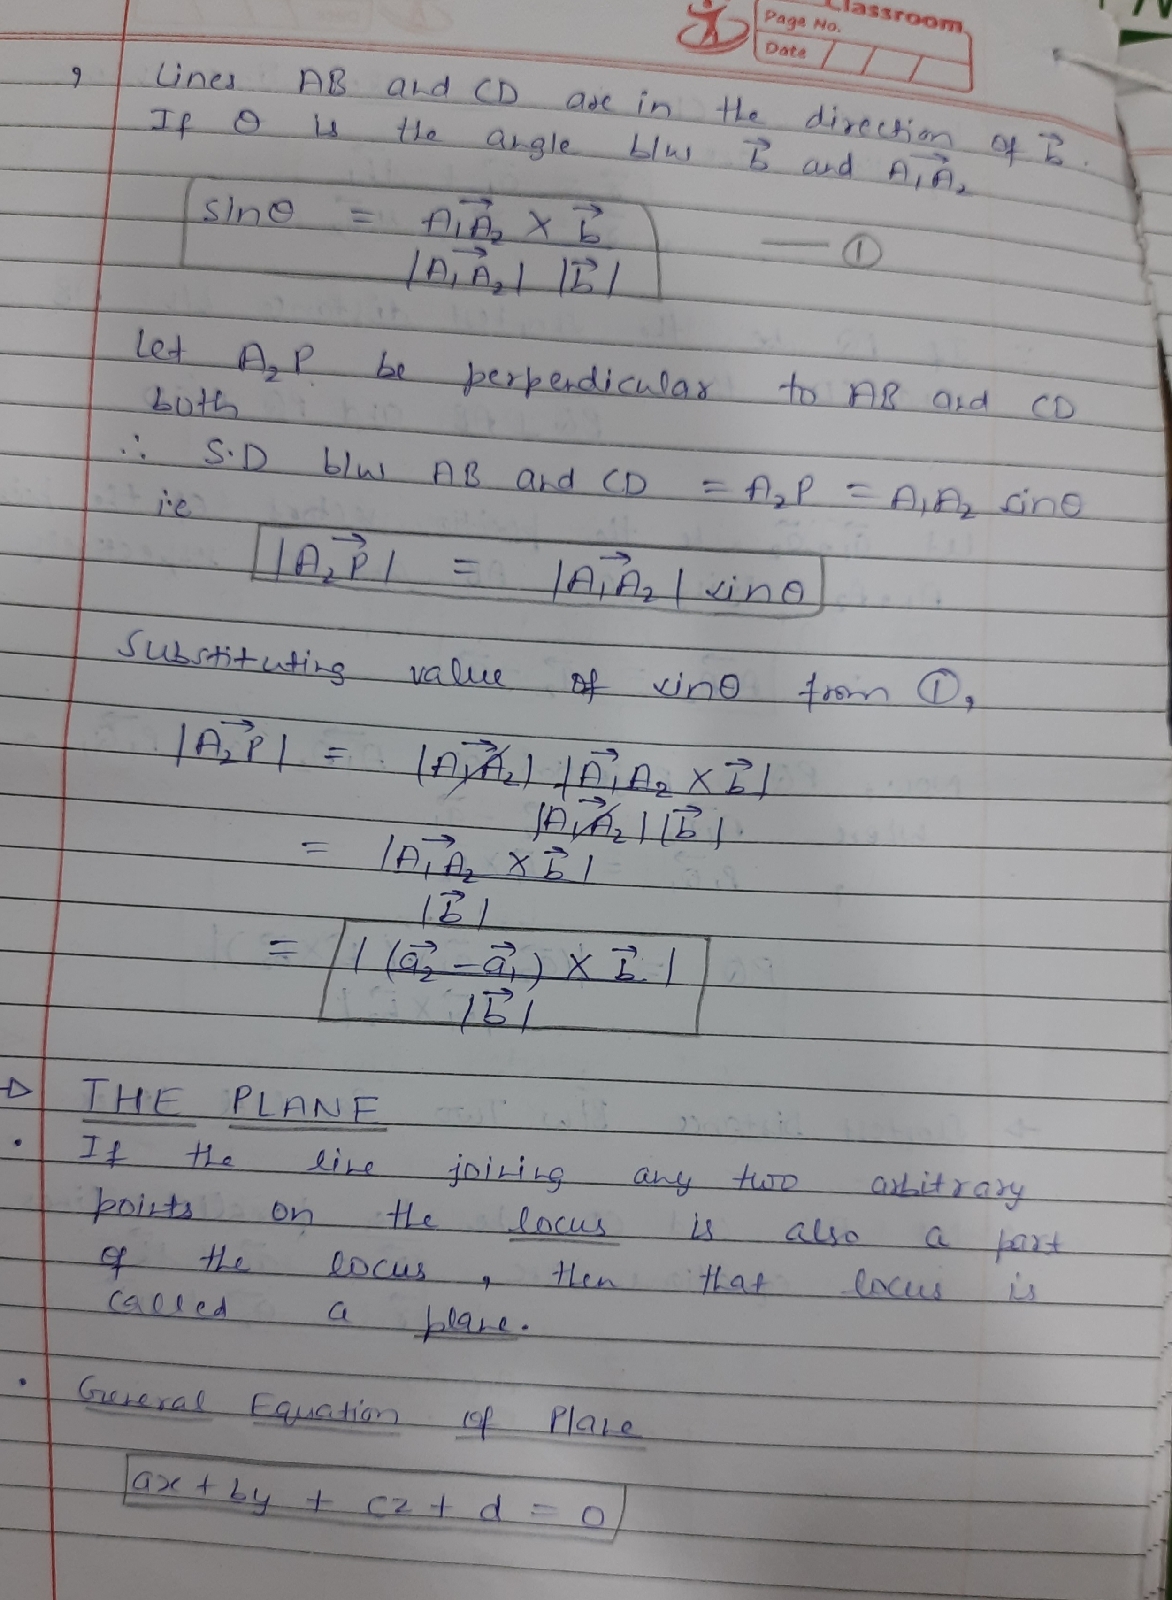 Classroom
Page No.
Date
, Lines AB and CD are in the direction of b⃗.
If θ is the angle b/w b⃗ and A₁A₂⃗
sinθ = A₁A₂⃗ × b⃗
|A₁A₂⃗| |b⃗|
— ①
Let A₂P be perpendicular to AB and CD
both
∴ S.D b/w AB and CD = A₂P = A₁A₂ sinθ
i.e
|A₂P⃗| = |A₁A₂⃗| sinθ
Substituting value of sinθ from ①,
|A₂P⃗| = |A₁A₂⃗| |A₁A₂⃗ × b⃗|
|A₁A₂⃗| |b⃗|
= |A₁A₂⃗ × b⃗|
|b⃗|
= |(a₂⃗ - a₁⃗) × b⃗|
|b⃗|
→ THE PLANE
• If the line joining any two arbitrary
points on the locus is also a part
of the locus, then that locus is
called a plane.
• General Equation of Plane
ax + by + cz + d = 0